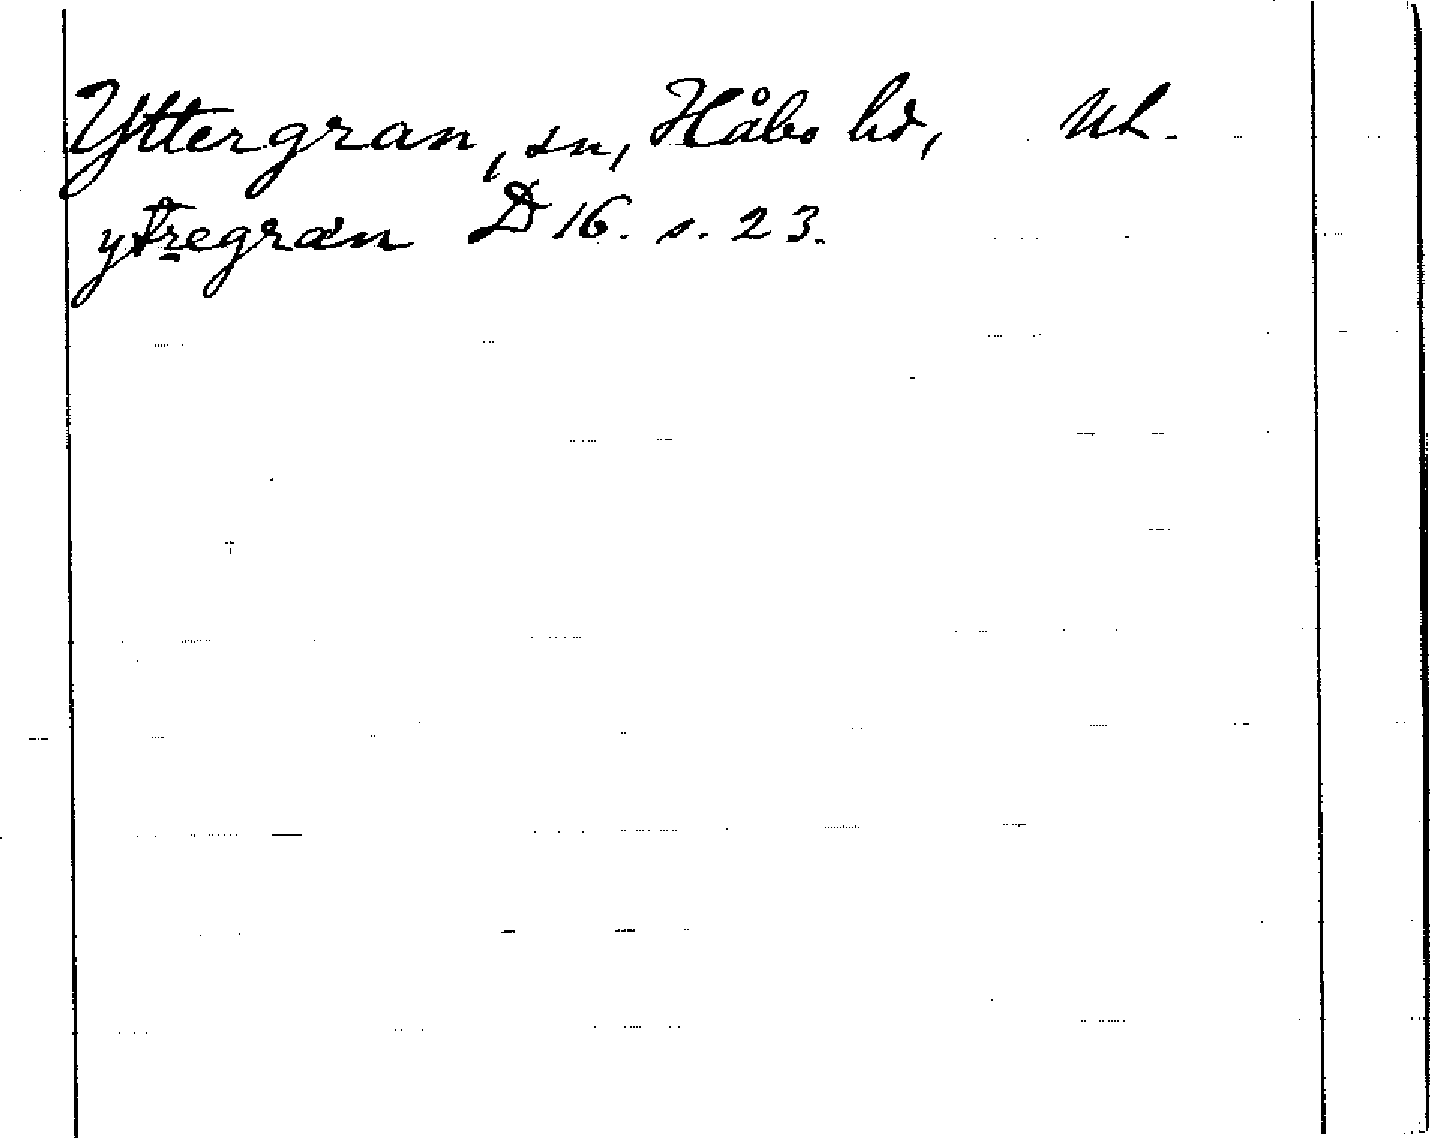 Yttergran, sn, Håbo hd, Ul.
ytregran D 16. s. 23.